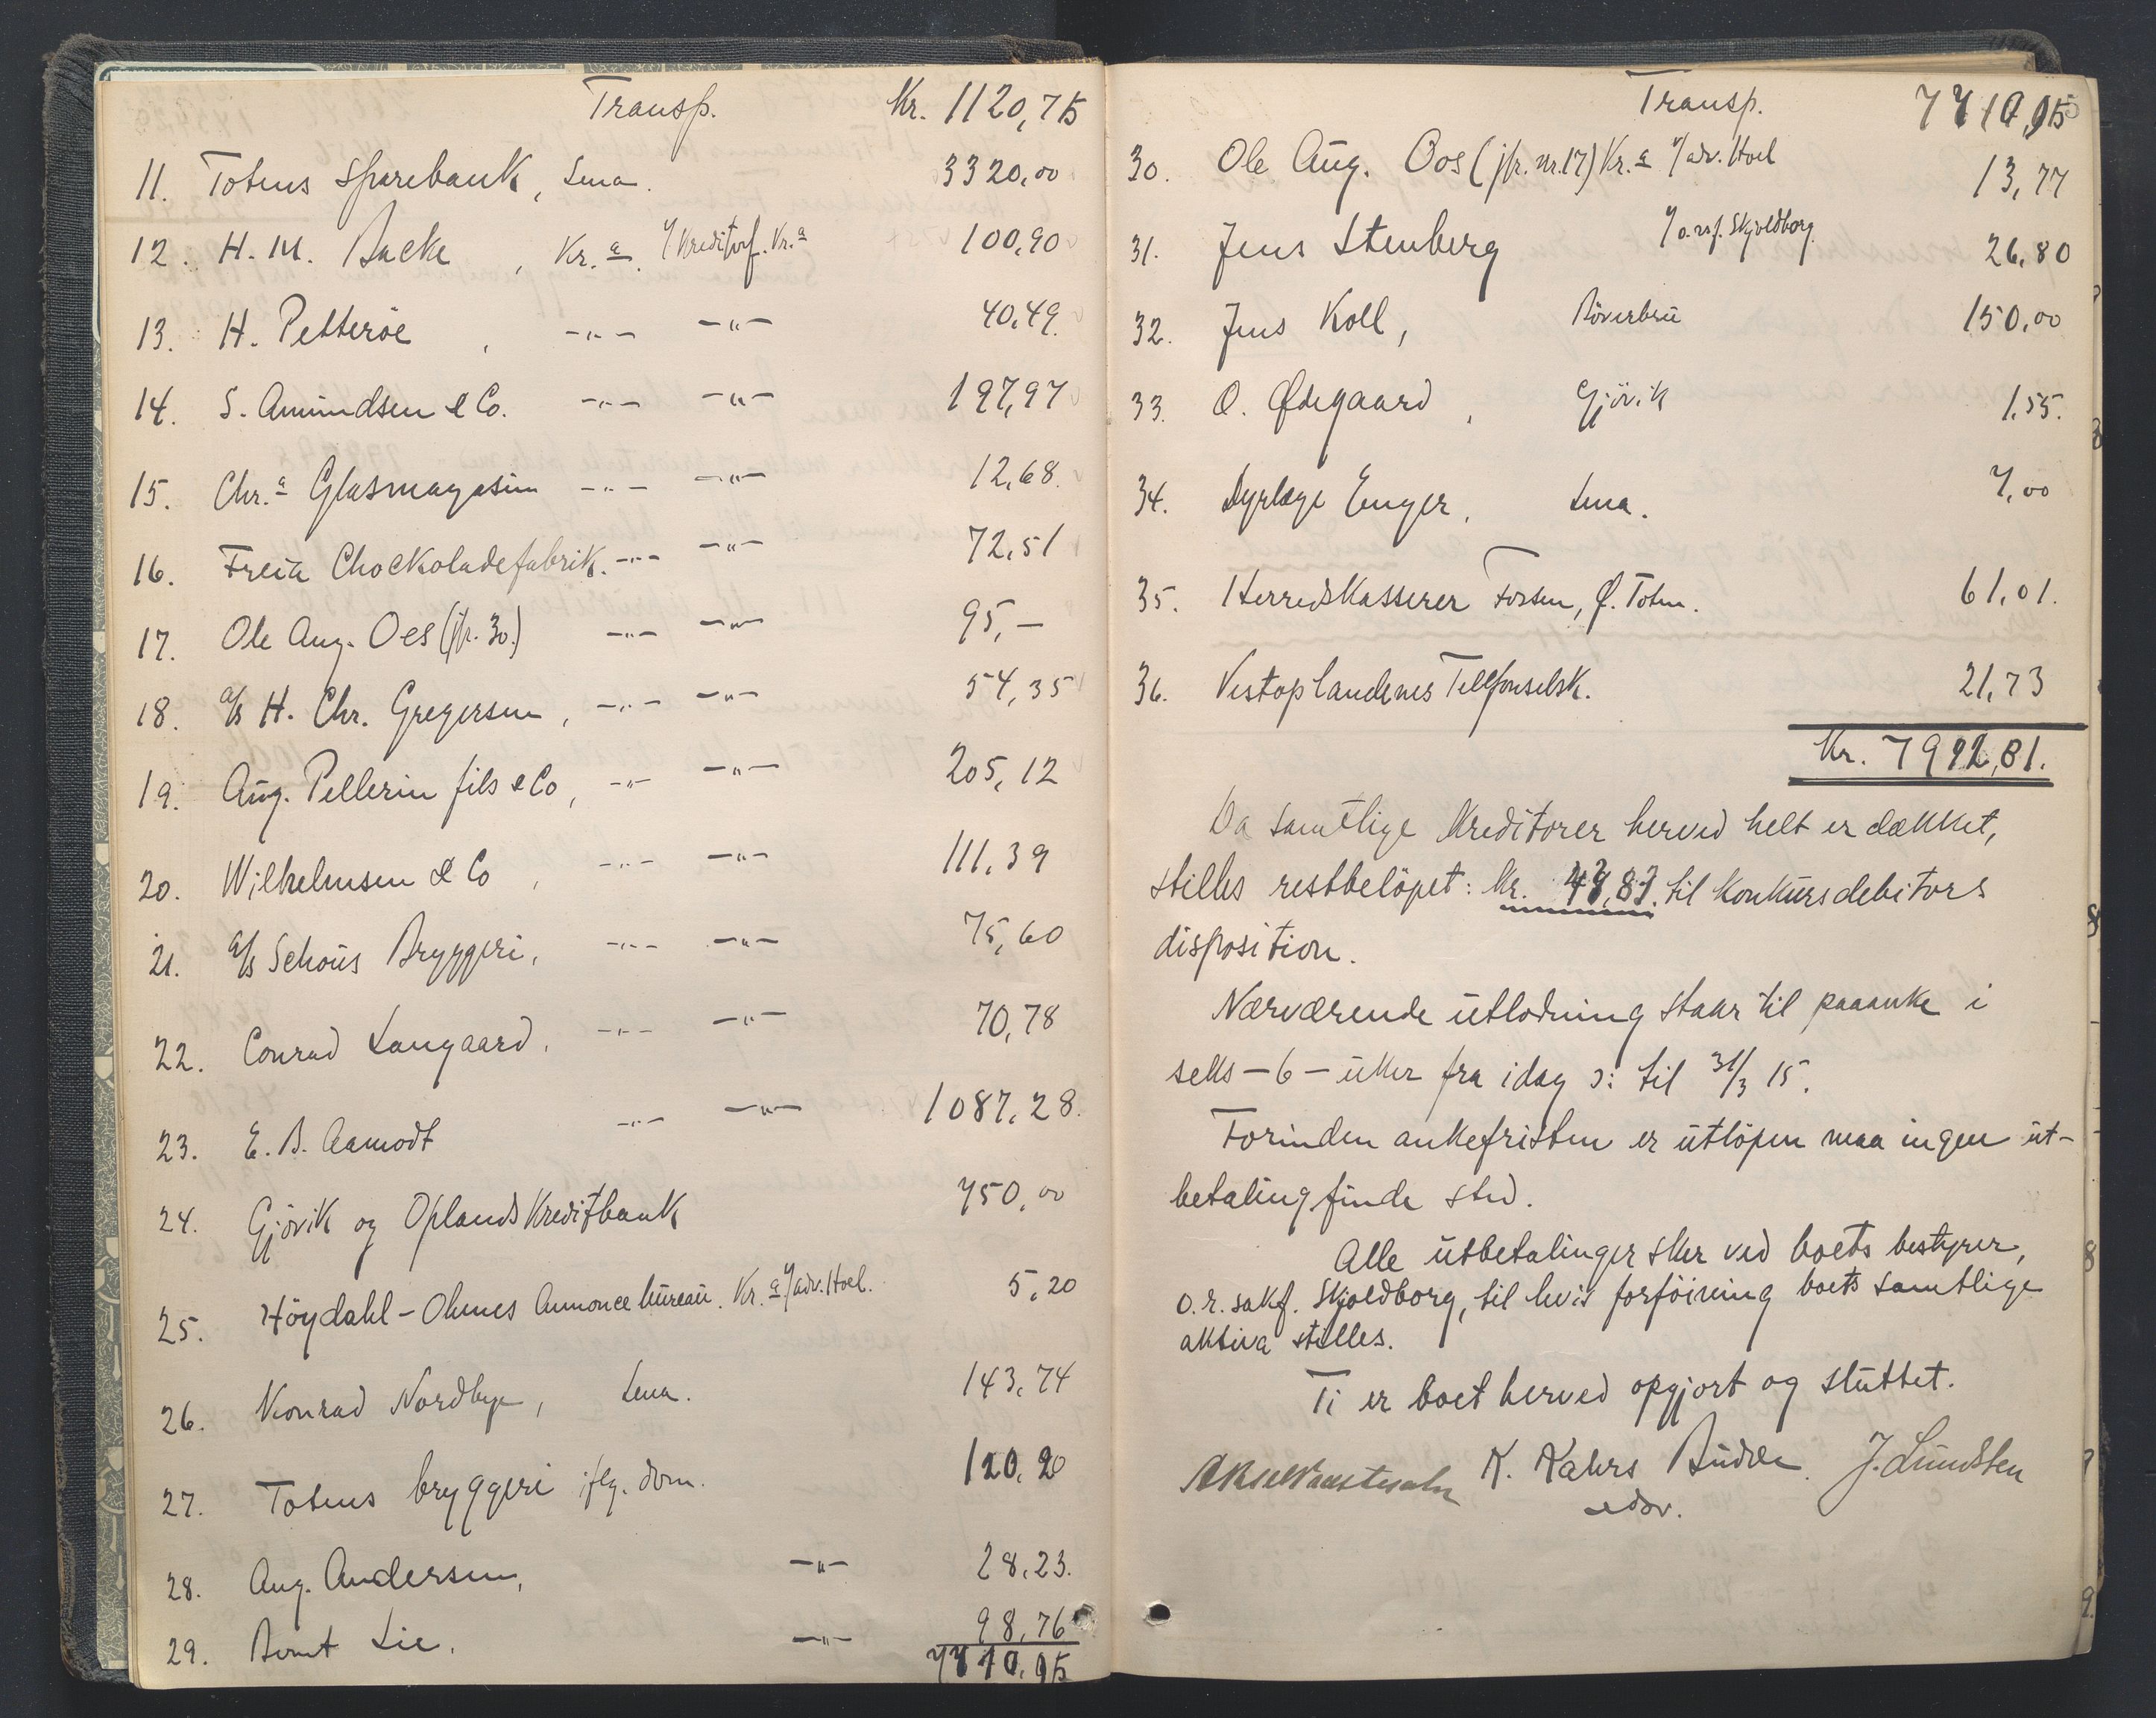 Transp. Kr. 1120,75
11. Totens Sparebank, Lena. 3320,00
12. H. M. Backe, Kr.a. v/ Kreditorf. Kr.a 100,90
13. H. Petteröe, -"- -"- 40,49.
14. S. Amundsen & Co. -"- -"- 197,97
15. Chr.a Glasmagasin -"- -"- 12,68.
16. Freia Chockoladefabrik. -"- -"- 72,51
17. Ole Aug. Oes (jfr. 30.) -"- -"- 95,—
18. a/s H. Chr. Gregersen, -"- -"- 54,35
19. Aug. Pellerin fils & Co, -"- -"- 205,12
20. Wilhelmsen & Co, -"- -"- 111,39
21. a/s Schous Bryggeri, -"- -"- 75,60
22. Conrad Langaard, -"- -"- 70,78
23. E. B. Aamodt -"- -"- 1087,28.
24. Gjövik og Oplands Kreditbank 750,00
25. Höydahl-Ohmes Annoncebureau. Kr.a v/ adv. Hoel. 5,20
26. Konrad Nordbye, Lena. 143,74
27. Totens bryggeri iflg. dom. 120,20
28. Aug. Andersen, -"- 28,23.
29. Bernt Lie, -"- 98,76
7710,95
Transp. 7710,95
30. Ole Aug. Oos (jfr. nr. 17) Kr.a v/ adv. Hoel 13,77
31. Jens Stenberg v/ o.r.sf. Skjoldborg. 26,80
32. Jens Koll, Röverbru 150,00
33. O. Ødegaard, Gjövik 1,55.
34. Dyrlæge Enger, Lena. 7,00
35. Herredskasserer Fossen, Ø. Toten. 61,01.
36. Vestoplandenes Telefonselsk. 21,73
Kr. 7992,81.
Da samtlige kreditorer herved helt er dækket,
stilles restbelöpet: kr. 47,83. til konkursdebitors
disposition.
Nærværende utlodning staar til paaanke i
seks - 6 - uker fra idag ɔ: til 31/3 15.
Forinden ankefristen er utlöpen maa ingen ut-
betaling finde sted.
Alle utbetalinger sker ved boets bestyrer,
o.r.sakf. Skjoldborg, til hvis forföining boets samtlige
aktiva stilles.
Ti er boet herved opgjort og sluttet.
K. Kahrs Budde. J. Lundsten
edsv.